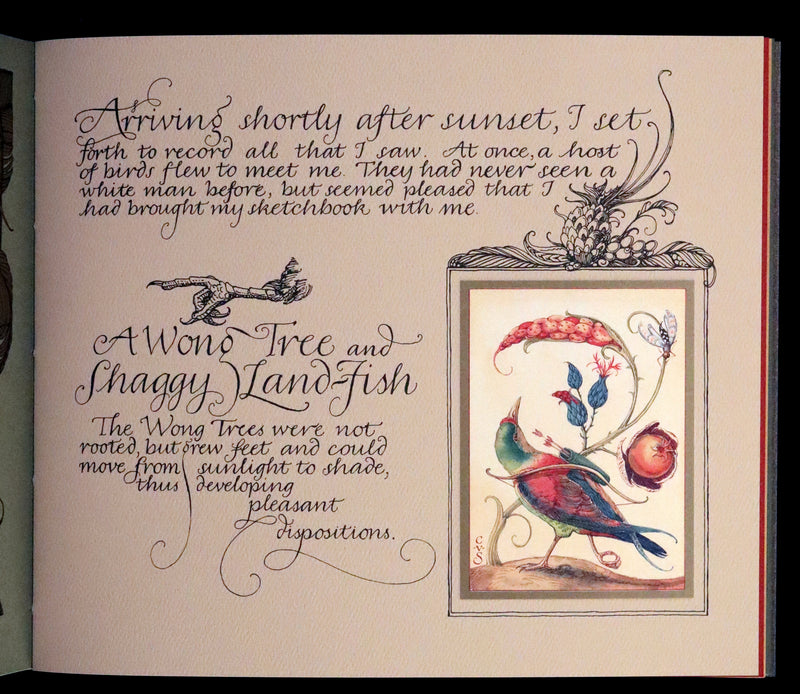 Arriving shortly after sunset, I set
forth to record all that I saw. At once, a host
of birds flew to meet me. They had never seen a
white man before, but seemed pleased that I
had brought my sketchbook with me.
A Wong Tree and
Shaggy Land-Fish
The Wong Trees were not
rooted, but grew feet and could
move from sunlight to shade,
thus developing
pleasant
dispositions.
C
v
S